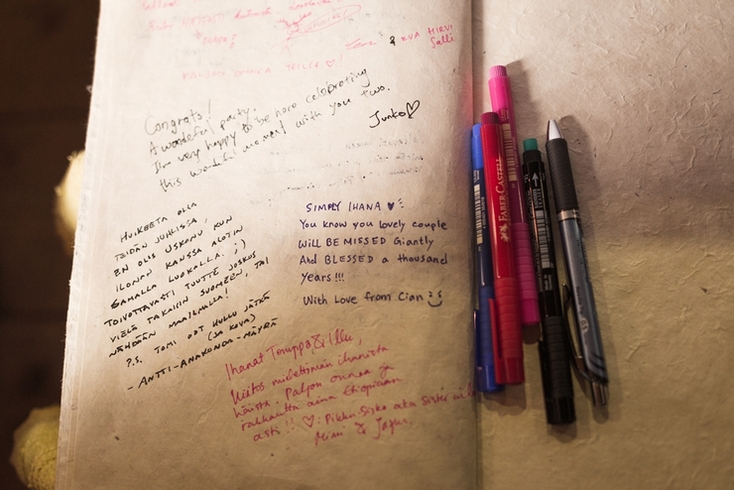 & EVA HIRVI
Salli
PALJON ONNEA TEILLE ♡!
Congrats!
A wonderful party.
I'm very happy to be here celebrating
this wonderful moment with you two.
Junko ♡
HUIKEETA OLLA
TEIDÄN JUHLISSA,
EN OLIS USKONU KUN
ILONIN KANSSA ALOTIN
SAMALLA LUOKALLA. ;)
TOIVOTTAVASTI TUUTTE JOSKUS
VIELÄ TAKAISIN SUOMEEN, TAI
NÄHDÄÄN MAAILMALLA!
P.S. TOMI OOT HULLU JÄTKÄ
(JA KOVA)
- ANTTI-ANAKONDA-MÄYRÄ
SIMPLY IHANA ♥
You know you lovely couple
Will BE MISSED Giantly
And BLESSED a thousand
Years!!!
With Love from Cian
Ihanat Tomppa & Illu,
Kiitos mielettömän ihanista
häistä. Paljon onnea ja
rakkautta aina Etiopiaan
asti!! ♡: Pikku-Sisko aka sister in
Mimi &
FABER-CASTELL